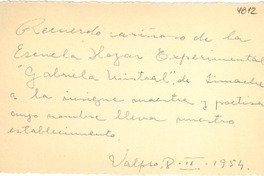 4812
Recuerdo cariñoso de la
Escuela Hogar Experimental
"Gabriela Mistral", de Limache
a la insigne maestra y poetisa
cuyo nombre lleva nuestro
establecimiento.
Valpso, 8 - II - 1954.